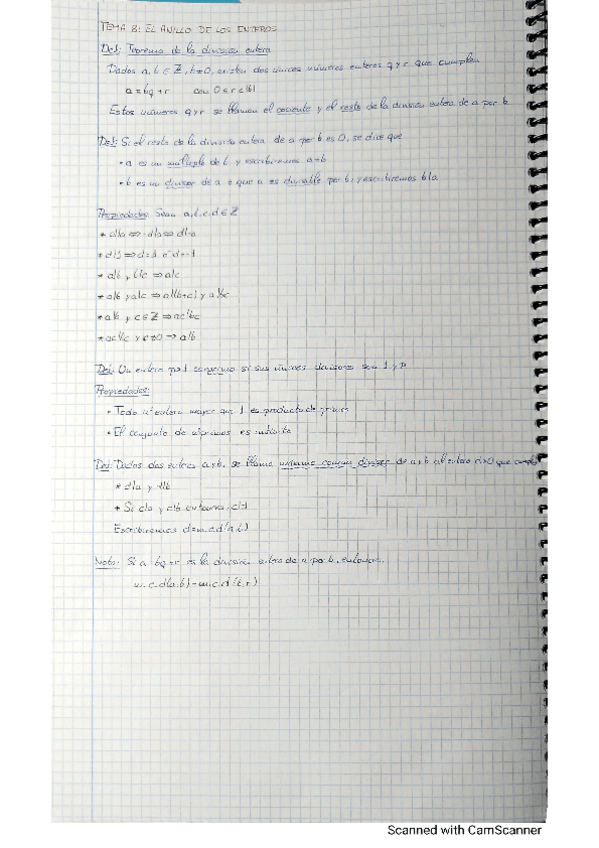 TEMA 8: EL ANILLO DE LOS ENTEROS
Def: Teorema de la división entera
Dados a, b ∈ Z, b≠0, existen dos únicos números enteros q y r que cumplan
a = bq + r con 0 ≤ r < |b|
Estos números q y r se llaman el cociente y el resto de la división entera de a por b
Def: Si el resto de la división entera de a por b es 0, se dice que
• a es un múltiplo de b y escribiremos a = b
• b es un divisor de a o que a es divisible por b, y escribiremos b|a
Propiedades: Sean a, b, c, d ∈ Z
* d|a ⇔ -d|a ⇔ d|-a
* d|1 ⇒ d=1 ó d=-1
* a|b y b|c ⇒ a|c
* a|b y a|c ⇒ a|(b+c) y a|b-c
* a|b y c ∈ Z ⇒ ac|bc
* ac|bc y c≠0 ⇒ a|b
Def: Un entero p>1 es primo si sus únicos divisores son 1 y p
Propiedades:
• Todo nº entero mayor que 1 es producto de primos
• El conjunto de nº primos es infinito
Def: Dados dos enteros a y b, se llama máximo común divisor de a y b al entero d>0 que cumple
* d|a y d|b
* Si c|a y c|b entonces c|d
Escribiremos d=m.c.d(a,b)
Nota: Si a=bq+r es la división entera de a por b, entonces
m.c.d(a,b)=m.c.d(b,r)
Scanned with CamScanner